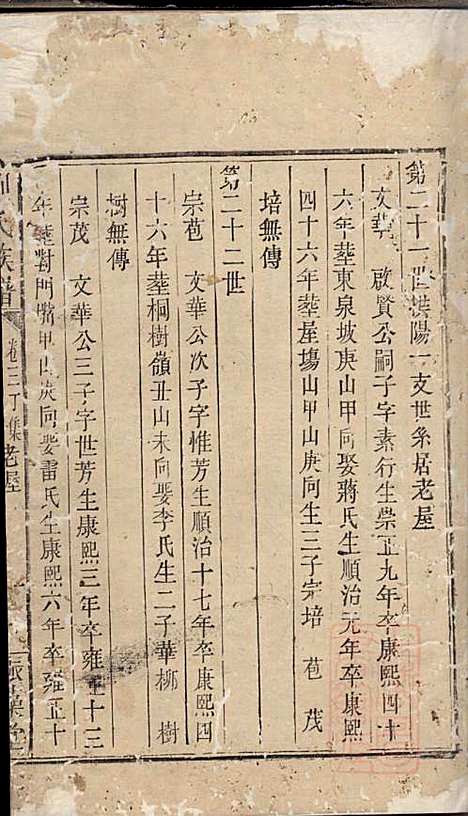 第二十一世洪陽一支世系居老屋
文華 啟賢公嗣子字素行生崇正九年卒康熙四十
六年塟東泉坡庚山甲向娶蔣氏生順治元年卒康熙
四十六年塟屋塲山甲山庚向生三子宗培 苞 茂
培無傳
第二十二世
宗苞 文華公次子字惟芳生順治十七年卒康熙四
十六年塟桐樹嶺丑山未向娶李氏生二子華柳 樹
樹無傳
宗茂 文華公三子字世芳生康熙三年卒雍正十三
年塟對門嘴甲山庚向娶雷氏生康熙六年卒雍正十
氏族譜 卷三丁集老屋